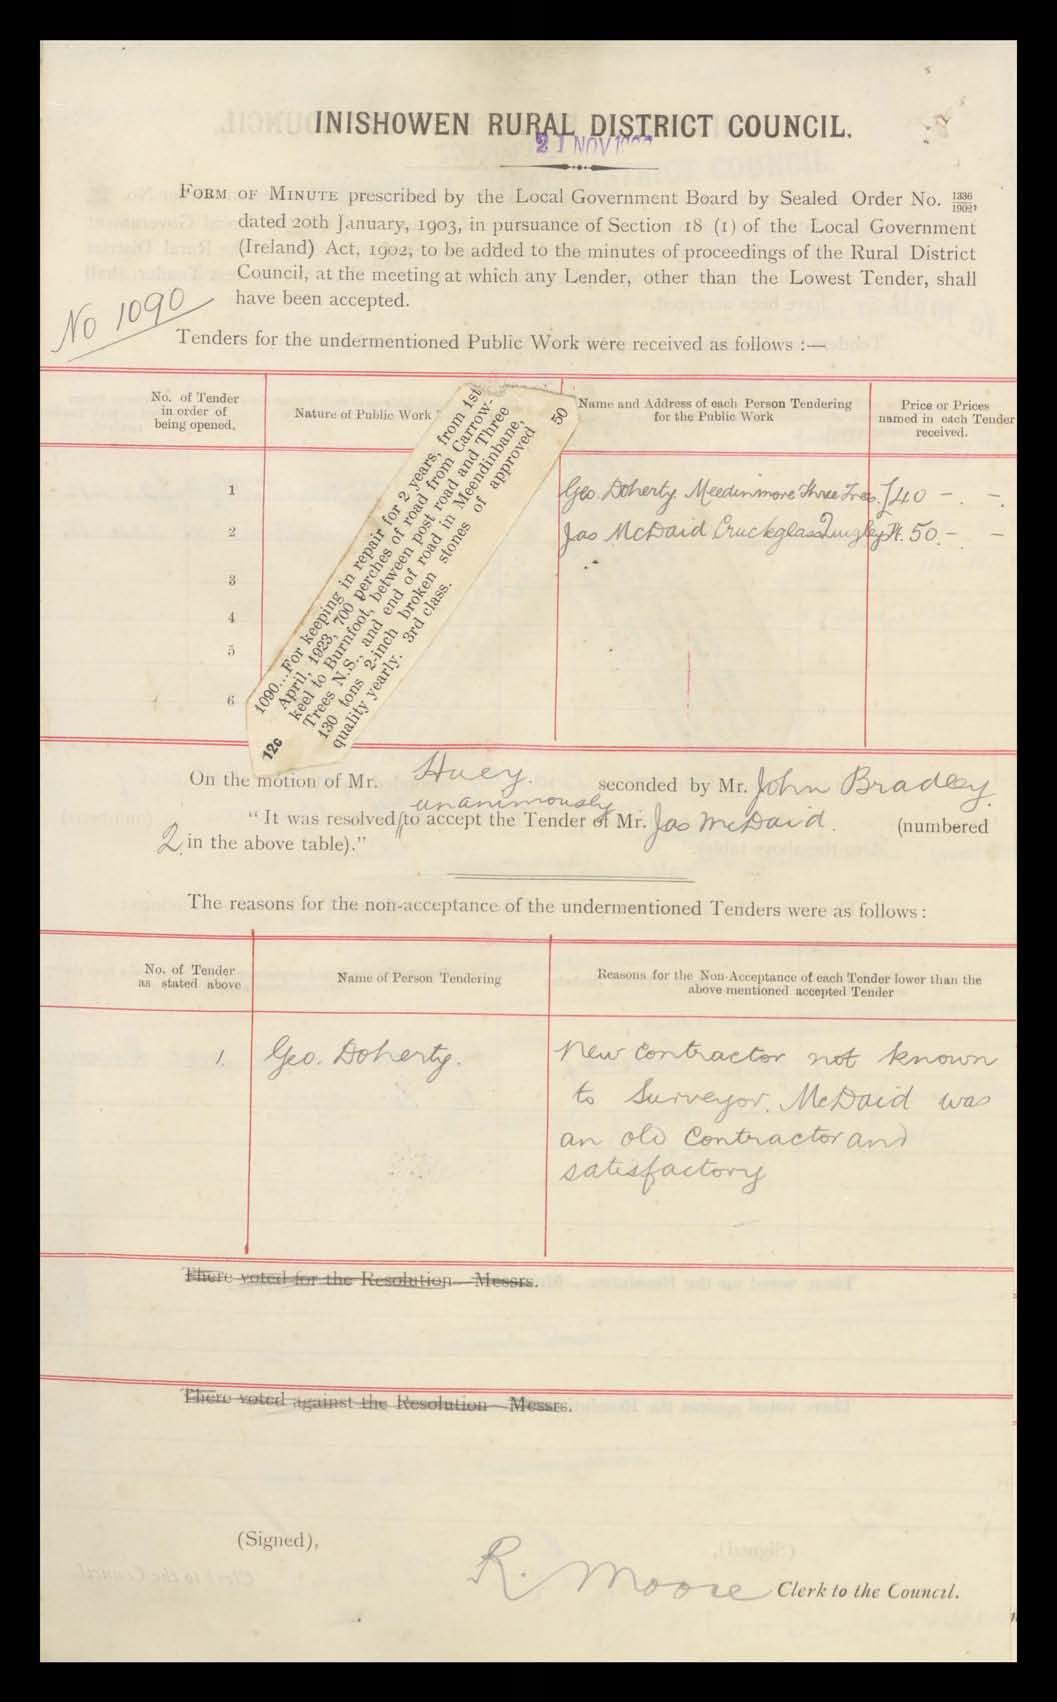 INISHOWEN RURAL DISTRICT COUNCIL.
21 NOV
FORM OF MINUTE prescribed by the Local Government Board by Sealed Order No. 1336/1902,
dated 20th January, 1903, in pursuance of Section 18 (1) of the Local Government
(Ireland) Act, 1902, to be added to the minutes of proceedings of the Rural District
Council, at the meeting at which any Lender, other than the Lowest Tender, shall
have been accepted.
No 1090
Tenders for the undermentioned Public Work were received as follows :—
No. of Tender
in order of
being opened.
Nature of Public Work
Name and Address of each Person Tendering
for the Public Work
Price or Prices
named in each Tender
received.
1090...For keeping in repair for 2 years, from 1st
April, 1923, 700 perches of road from Carrow-
keel to Burnfoot, between post road and Three
Trees N.S., and end of road in Meendinbane,
130 tons 2-inch broken stones of approved
quality yearly. 3rd class.
12c
50
1 Geo. Doherty. Meedinmore Three Trees. £40 - . - .
2 Jas McDaid Cruckglass Quigleys Pt. 50. - . -
3
4
5
6
On the motion of Mr. Huey. seconded by Mr. John Bradley.
unanimously
"It was resolved to accept the Tender of Mr. Jas McDaid. (numbered
2 in the above table)."
The reasons for the non-acceptance of the undermentioned Tenders were as follows :
No. of Tender
as stated above
Name of Person Tendering
Reasons for the Non-Acceptance of each Tender lower than the
above mentioned accepted Tender
1. Geo. Doherty. New contractor not known
to Surveyor. McDaid was
an old contractor and
satisfactory
There voted for the Resolution—Messrs.
There voted against the Resolution—Messrs.
(Signed),
R. Moore Clerk to the Council.